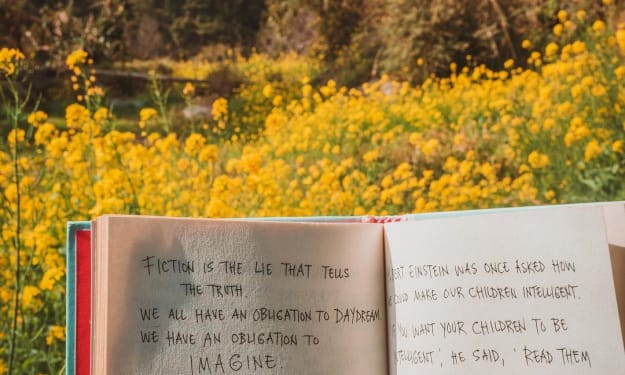 FICTION IS THE LIE THAT TELLS
THE TRUTH.
WE ALL HAVE AN OBLIGATION TO DAYDREAM.
WE HAVE AN OBLIGATION TO
IMAGINE.
EINSTEIN WAS ONCE ASKED HOW
COULD MAKE OUR CHILDREN INTELLIGENT.
YOU WANT YOUR CHILDREN TO BE
INTELLIGENT', HE SAID, 'READ THEM